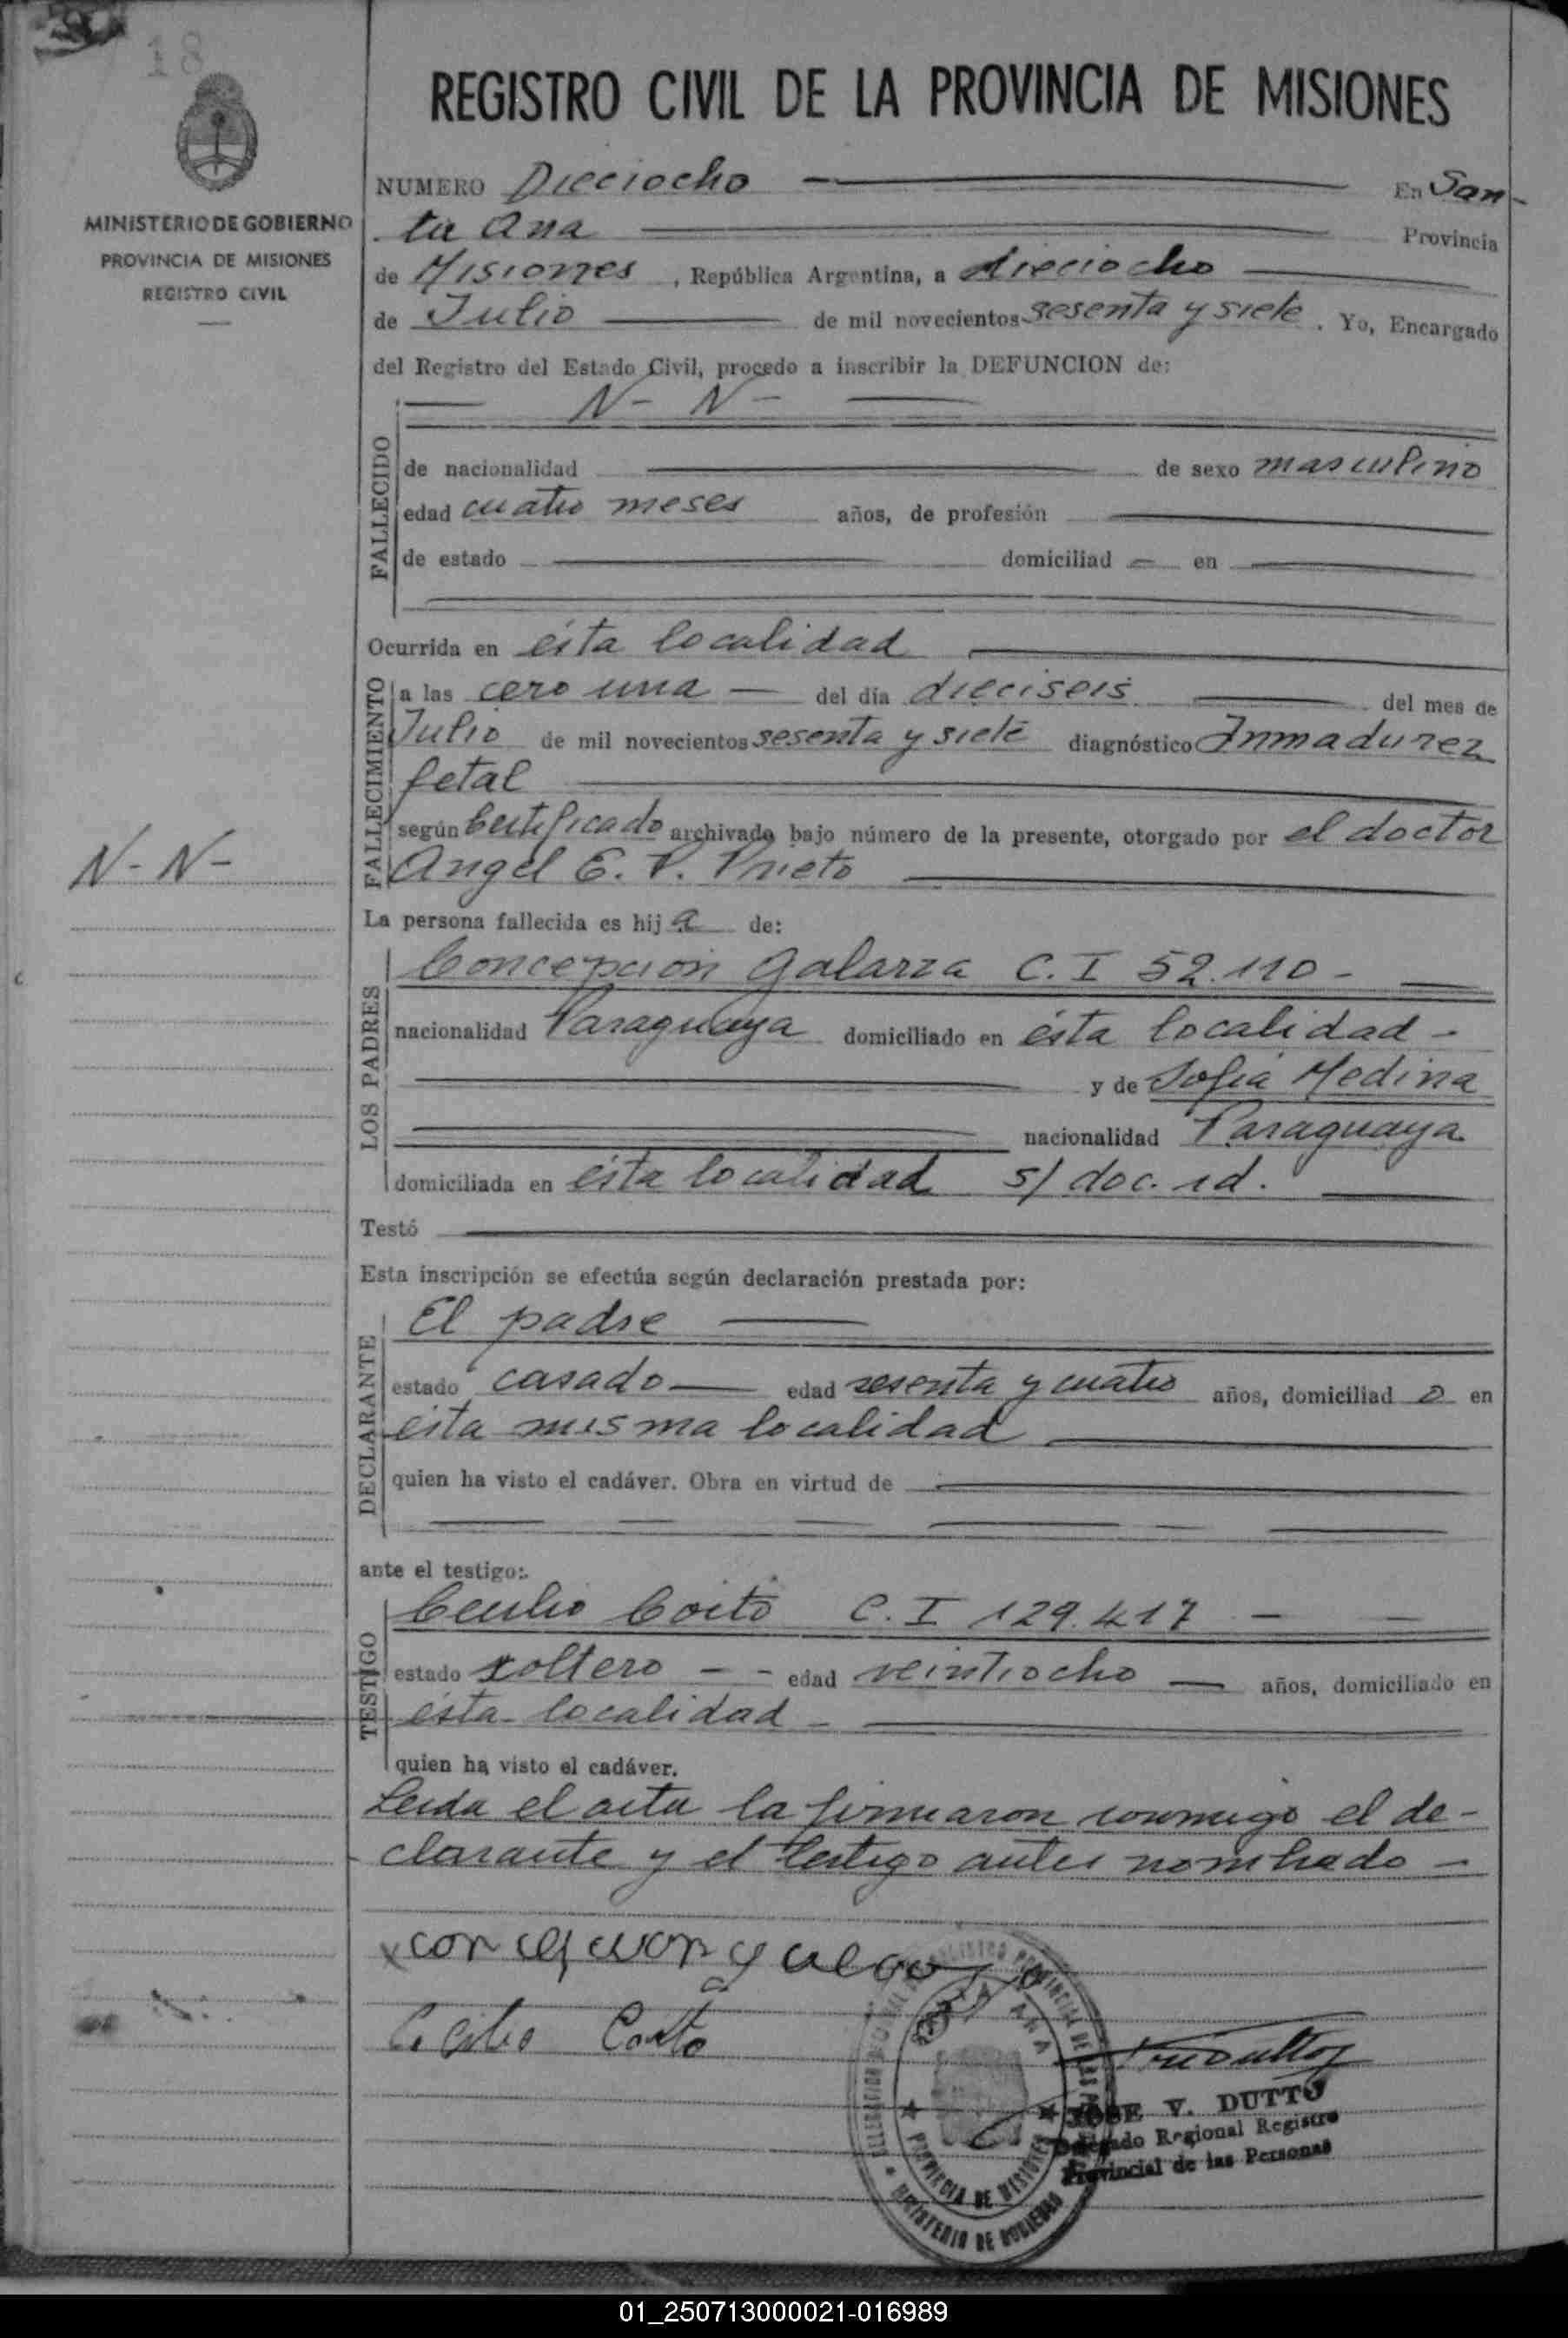 18
REGISTRO CIVIL DE LA PROVINCIA DE MISIONES
MINISTERIO DE GOBIERNO
PROVINCIA DE MISIONES
REGISTRO CIVIL
NUMERO Dieciocho En San-
ta Ana Provincia
de Misiones, República Argentina, a dieciocho
de Julio de mil novecientos sesenta y siete. Yo, Encargado
del Registro del Estado Civil, procedo a inscribir la DEFUNCION de:
N- N-
FALLECIDO
de nacionalidad de sexo masculino
edad cuatro meses años, de profesión
de estado domiciliad en
Ocurrida en ésta localidad
FALLECIMIENTO
a las cero una del día dieciseis del mes de
Julio de mil novecientos sesenta y siete diagnóstico Inmadurez
fetal
según Certificado archivado bajo número de la presente, otorgado por el doctor
Angel E. P. Prieto
N- N-
La persona fallecida es hij a de:
LOS PADRES
Concepcion Galarza C. I 52.110-
nacionalidad Paraguaya domiciliado en ésta localidad -
y de Sofia Medina
nacionalidad Paraguaya
domiciliada en ésta localidad s/ doc. id.
Testó
Esta inscripción se efectúa según declaración prestada por:
DECLARANTE
El padre
estado casado edad sesenta y cuatro años, domiciliad o en
ésta misma localidad
quien ha visto el cadáver. Obra en virtud de
ante el testigo:
TESTIGO
Cecilio Coito C. I 129.417
estado soltero edad veintiocho años, domiciliado en
ésta localidad
quien ha visto el cadáver.
Leida el acta la firmaron conmigo el de-
clarante y el testigo antes nombrado -
Cecilio Coito
SANTA ANA
PROVINCIA DE MISIONES
MINISTERIO DE GOBIERNO
JOSE V. DUTTO
Delegado Regional Registro
Provincial de las Personas
01_250713000021-016989